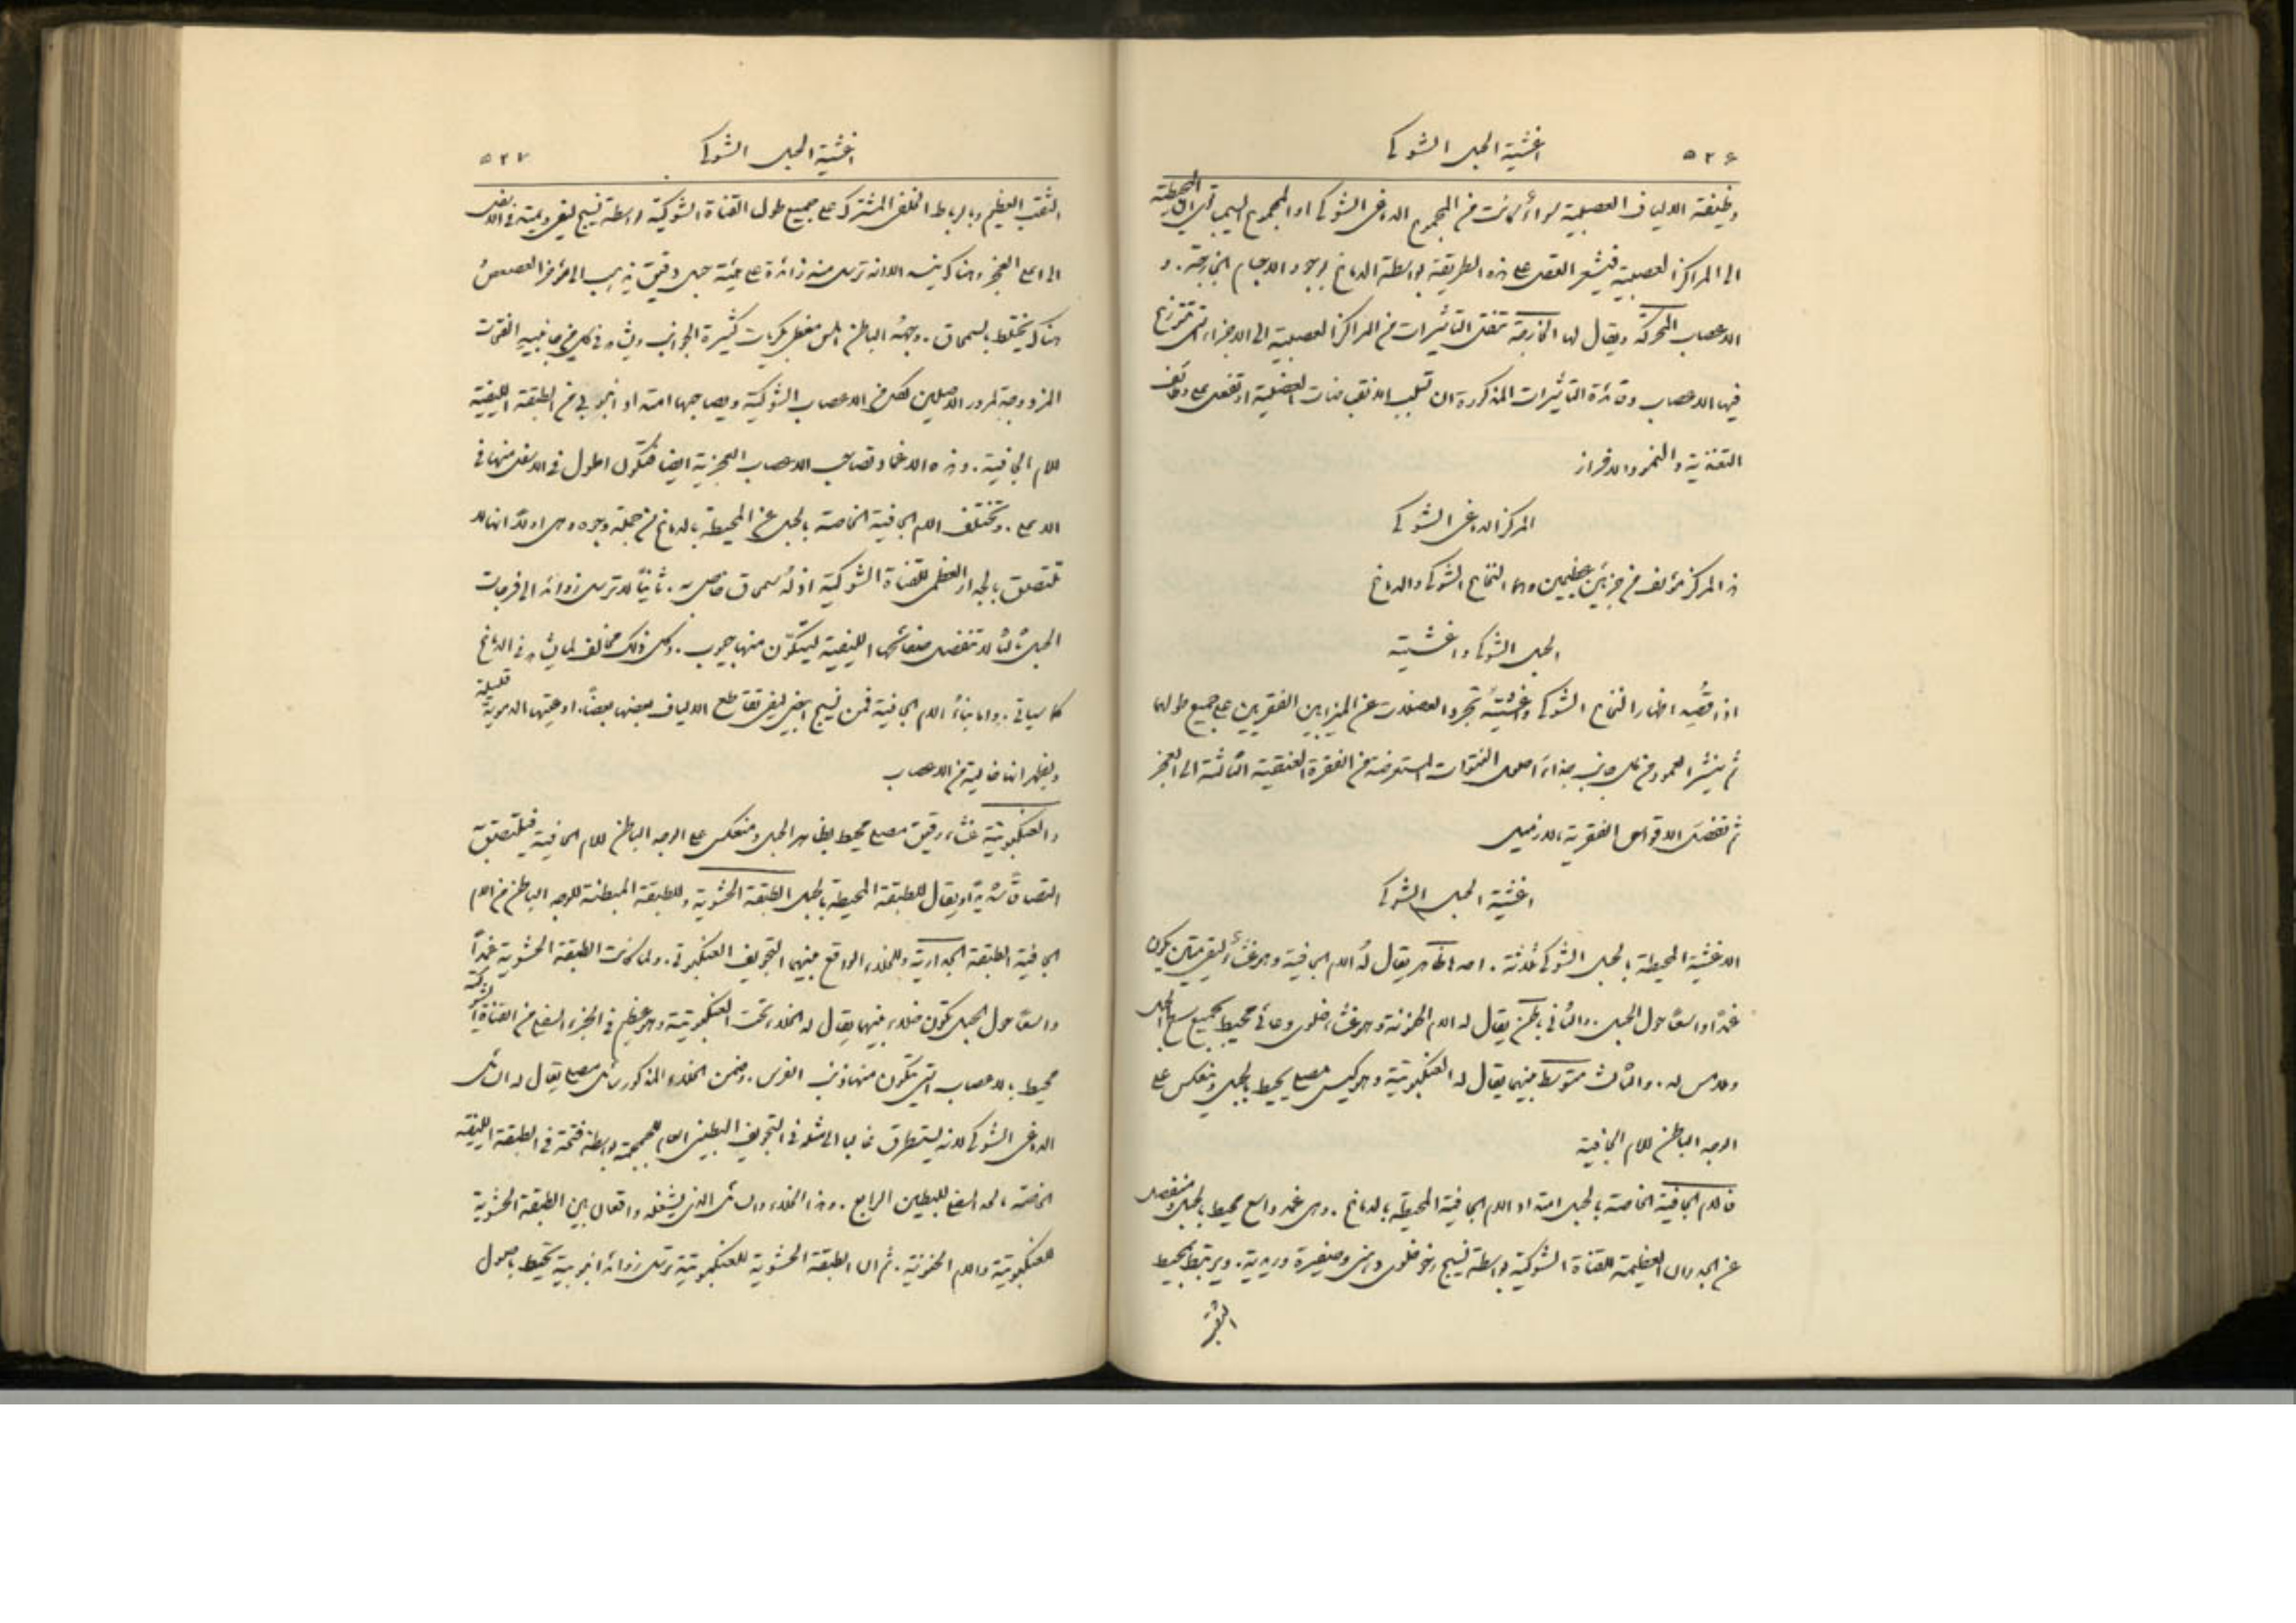 ٥٢٦
اغشية الحبل الشوكي
وظيفة الالياف العصبية سواء كانت من المجموع الدماغي الشوكي او المجموع السيمباتي المحيطية
الى المراكز العصبية فيشعر العقل على هذه الطريقة بواسطة الدماغ بوجود الاجسام الخارجة. و
الاعصاب المحركة ويقال لها الخارجة تنقل التأثيرات من المراكز العصبية الى الاجزاء التي تتوزع
فيها الاعصاب وفائدة التأثيرات المذكورة ان تسبب الانقباضات العضلية او تفعل على وظائف
التغذية والنمو والافراز
المركز الدماغي الشوكي
هذا المركز مؤلف من جزئين عظيمين وهما النخاع الشوكي والدماغ
الحبل الشوكي واغشيته
اذا قُصِد اظهار النخاع الشوكي واغشيته تجرد العضلات عن الميزابين الفقريين على جميع طولهما
ثم ينشر العمود من كل جانب بحذاء اصول النتوات المستعرضة من الفقرة العنقية الثالثة الى العجز
ثم تفصل الاقواس الفقرية بالازميل
اغشية الحبل الشوكي
الاغشية المحيطة بالحبل الشوكي ثلاثة. احدها ظاهر يقال له الام الجافية وهو غشاء ليفي متين يكون
غمدًا واسعًا حول الحبل. والثاني باطن يقال له الام الحنونة وهو غشاء خلوي وعائي محيط بجميع سطح الحبل
وملامس له. والثالث متوسط بينهما يقال له العنكبوتية وهو كيس مصلي يحيط بالحبل وينعكس على
الوجه الباطن للام الجافية
فالام الجافية الخاصة بالحبل امتداد الام الجافية المحيطة بالدماغ. وهي غمد واسع محيط بالحبل ومنفصل
عن الجدران العظيمة للقناة الشوكية بواسطة نسيج رخو خلوي دهني وضفيرة وريدية. ويرتبط بمحيط
الثقب
٥٢٧
اغشية الحبل الشوكي
الثقب العظيم وبالرباط الخلفي المشترك على جميع طول القناة الشوكية بواسطة نسيج ليفي ويمتد في الاسفل
الى اعلى العجز وهناك ينسد الا انه ترسل منه زائدة على هيئة حبل دقيق يذهب الى مؤخر العصعص
هناك يختلط بالسمحاق. وجهه الباطن املس مغطى بكريات كثيرة الجوانب ويشاهد في كل من جانبيه الفتحات
المزدوجة لمرور الاصلين لكل من الاعصاب الشوكية ويصاحبها امتداد انبوبي من الطبقة الليفية
للام الجافية. وهذه الاغماد تصاحب الاعصاب العجزية ايضا فتكون اطول في الاسفل منها في
الاعلى. وتختلف الام الجافية الخاصة بالحبل عن المحيطة بالدماغ من جملة وجوه وهي اولا انها لا
تلتصق بالجدار العظمي للقناة الشوكية اذ له سمحاق خاص به. ثانيًا لا ترسل زوائد الى فرجات
الحبل. ثالثًا لا تنفصل صفائحها الليفية ليتكون منها جيوب. وكل ذلك مخالف لما يشاهد في الدماغ
كما سياتي. واما بناءُ الام الجافية فمن نسيج ابيض ليفي تتقاطع الالياف بعضها بعضًا. اوعيتها الدموية قليلة
ويظهر انها خالية من الاعصاب
والعنكبوتية غشاء رقيق مصلي محيط بظاهر الحبل ومنعكس على الوجه الباطن للام الجافية فيلتصق
التصاقًا شديدًا ويقال للطبقة المحيطة بالحبل الطبقة الحشوية وللطبقة المبطنة للوجه الباطن من الام
الجافية الطبقة الجدارية وللخلاء الواقع بينهما التجويف العنكبوتي. ولما كانت الطبقة الحشوية غمدًا
واسعًا حول الحبل يتكون خلاء بينهما يقال له الخلاء تحت العنكبوتية وهو عظيم في الجزء السفلي من القناة الشوكية
محيط بالاعصاب التي يتكون منها ذنب الفرس. وضمن الخلاء المذكور سائل مصلي يقال له السائل
الدماغي الشوكي لانه يستطرق غالبا الى مثله في التجويف البطيني العام للجمجمة بواسطة فتحة في الطبقة الليفية
الخاصة بالحد السفلي للبطين الرابع. وهذا الخلاء والسائل الذي يشغله واقعان بين الطبقة الحشوية
للعنكبوتية والام الحنونة. ثم ان الطبقة الحشوية للعنكبوتية ترسل زوائد انبوبية تحيط باصول